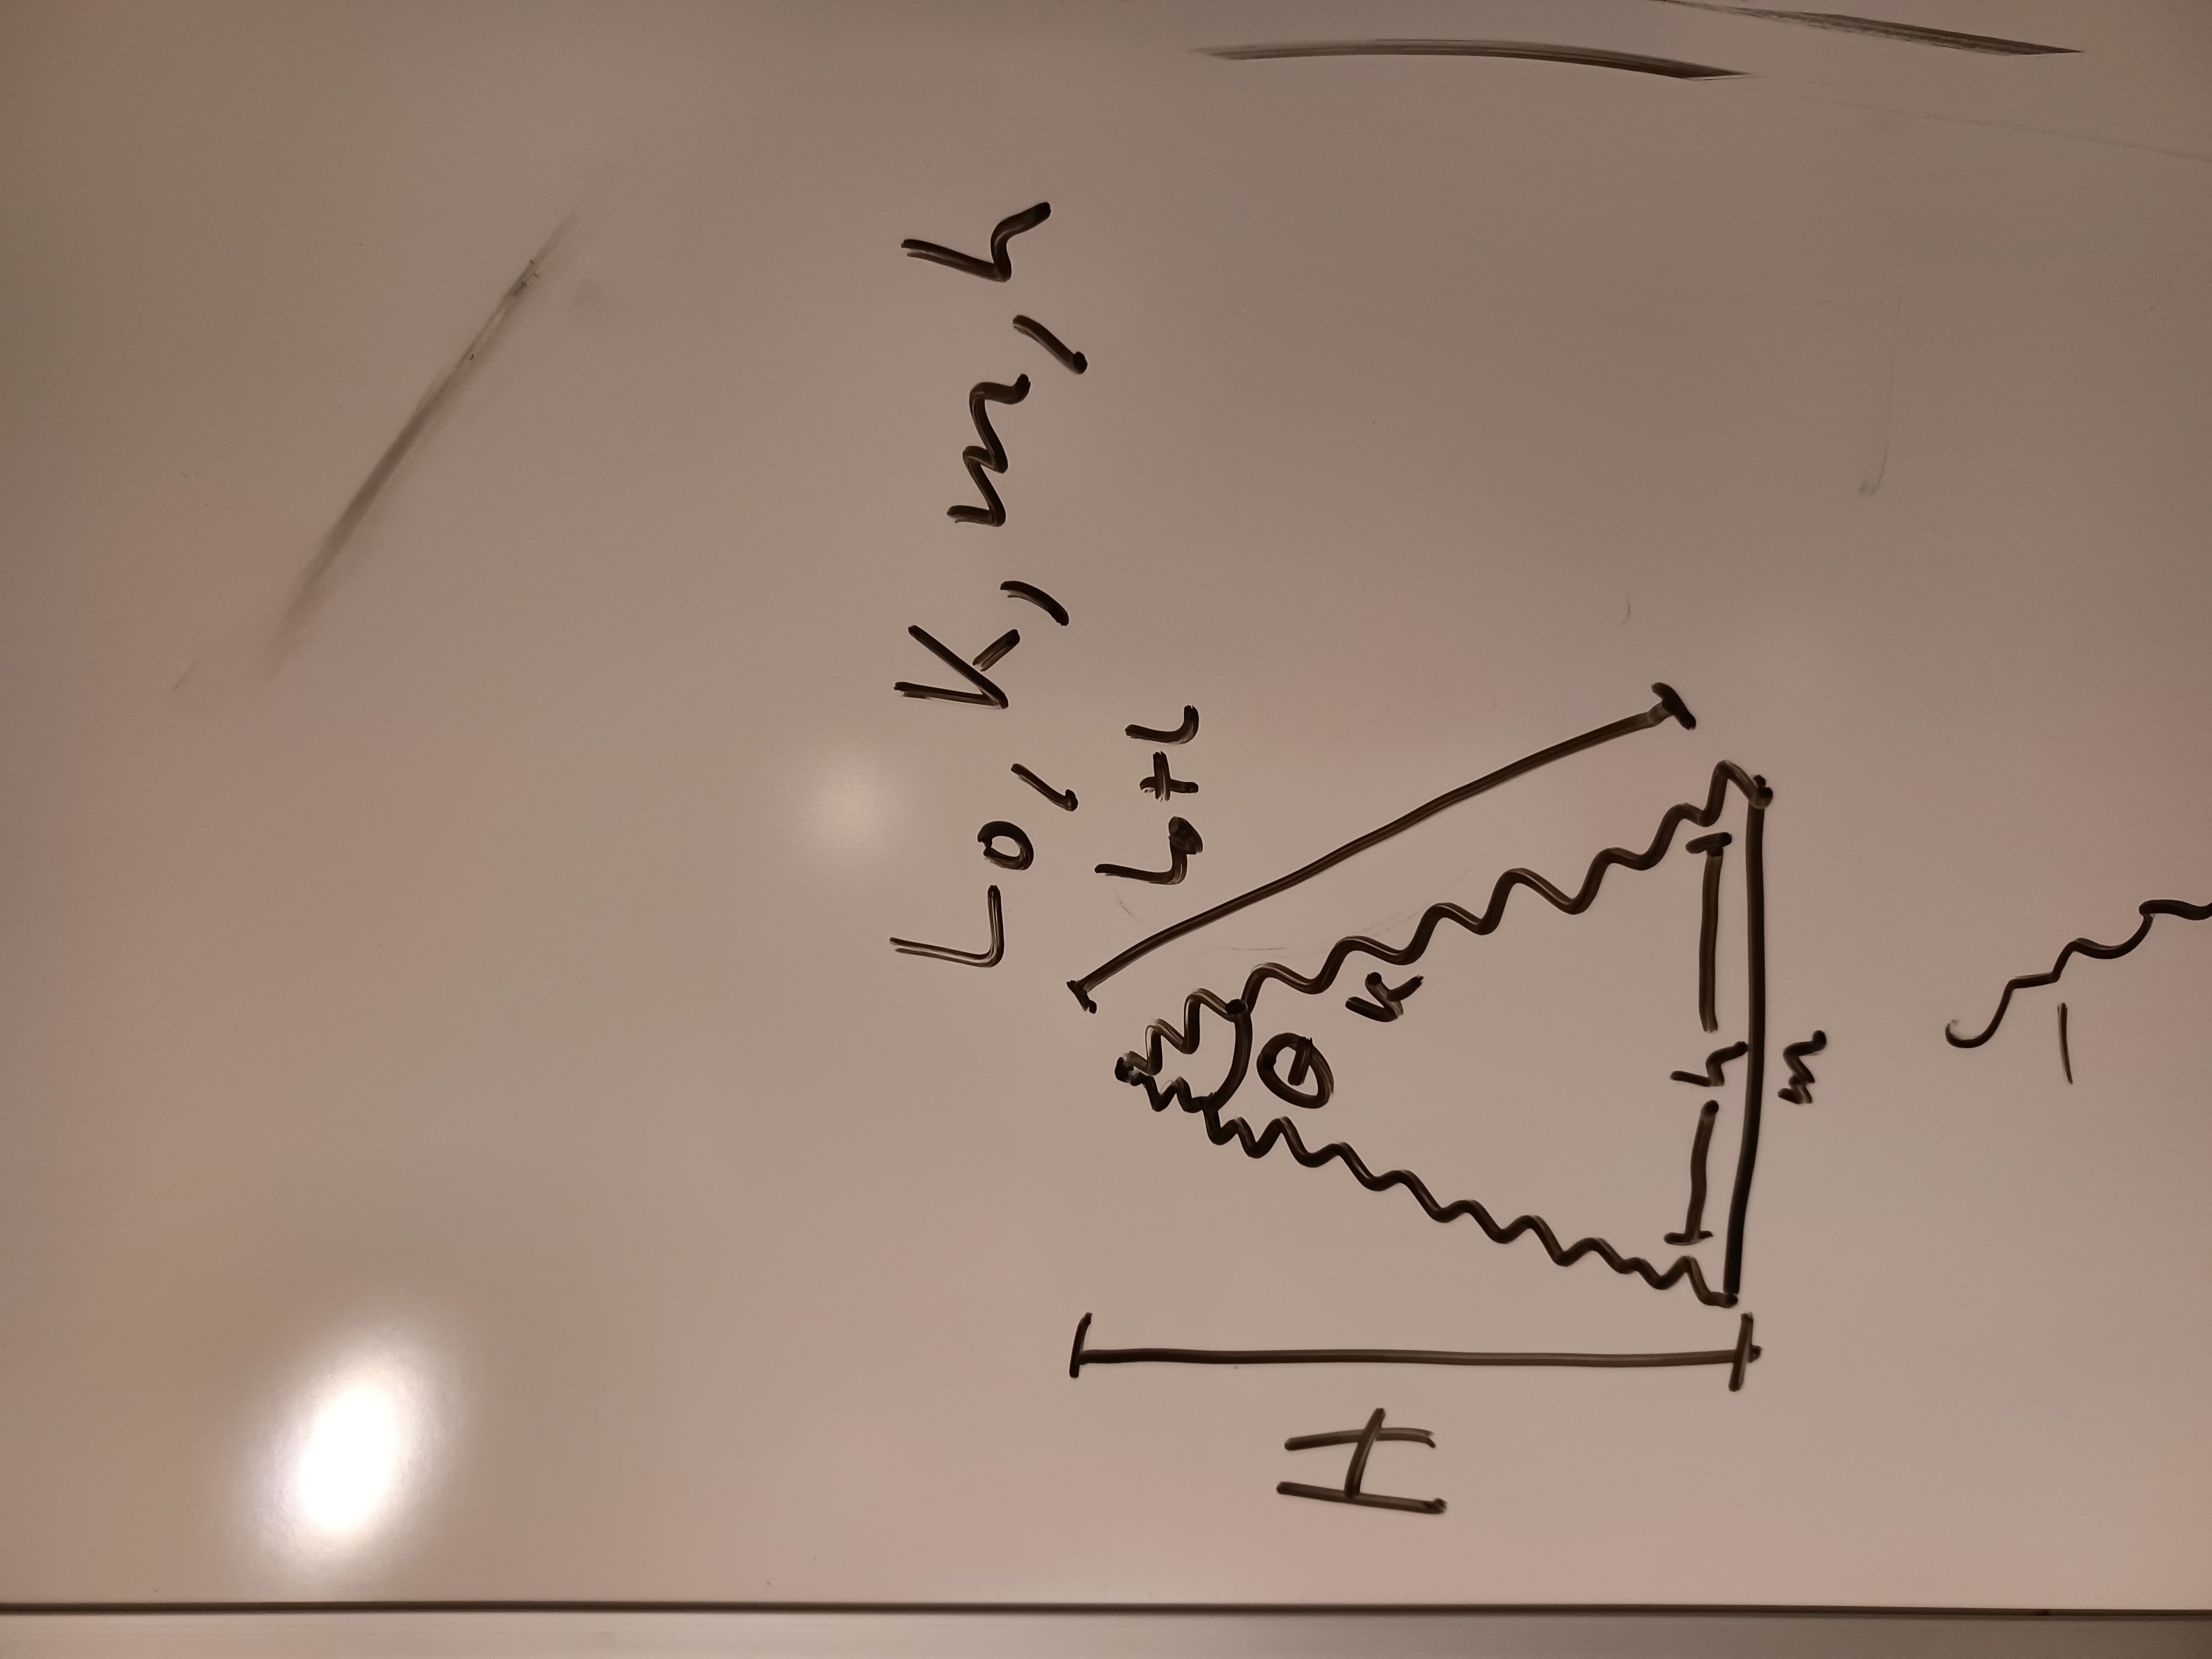 L₀, K, m, h
L₀+l
H
θ
K
h
m